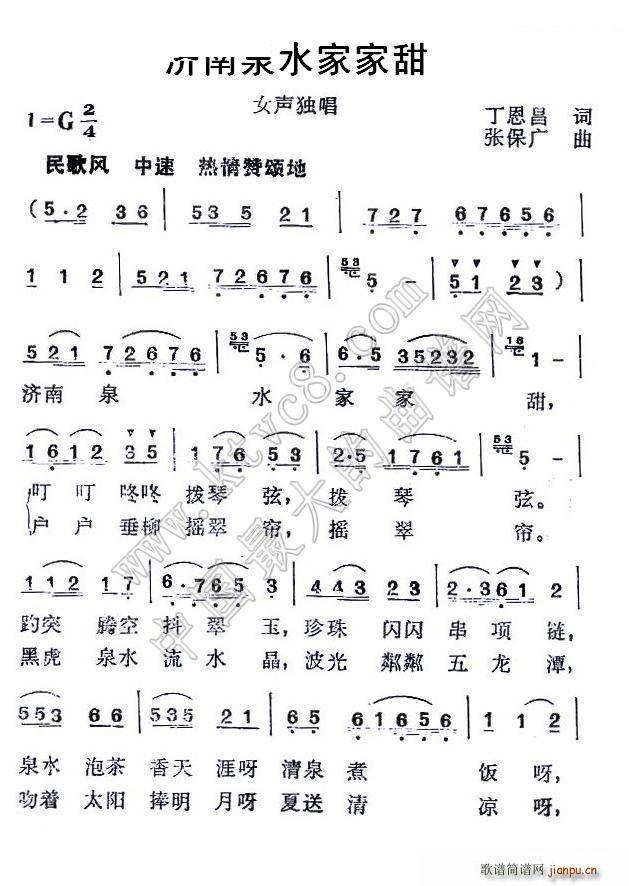 济南泉水家家甜
女声独唱
1=G 2/4
丁恩昌 词
张保广 曲
民歌风 中速 热情赞颂地
(5·2 36 | 535 21 | 727 67656 |
112 | 521 72676 | 53 5 - | 51 23) |
521 72676 | 53 6·6 | 6·5 35232 | 16 1 - |
济南 泉 水 家 家 甜,
1612 35 | 176 53 | 2·5 1761 | 53 5 - |
叮 叮 咚咚 拨琴 弦, 拨 琴 弦。
户 户 垂柳 摇翠 帘, 摇 翠 帘。
112 17 | 6·765 3 | 443 23 | 2·361 2 |
趵突 腾空 抖 翠 玉, 珍珠 闪闪 串 项 链,
黑虎 泉水 流 水 晶, 波光 粼粼 五 龙 潭,
553 66 | 535 21 | 6123 7656 | 11 2 |
泉水 泡茶 香天 涯呀 清泉 煮 饭 呀,
吻着 太阳 捧明 月呀 夏送 清 凉 呀,
www.ktvc8.com
中国最大的曲谱网
歌谱简谱网 jianpu.cn